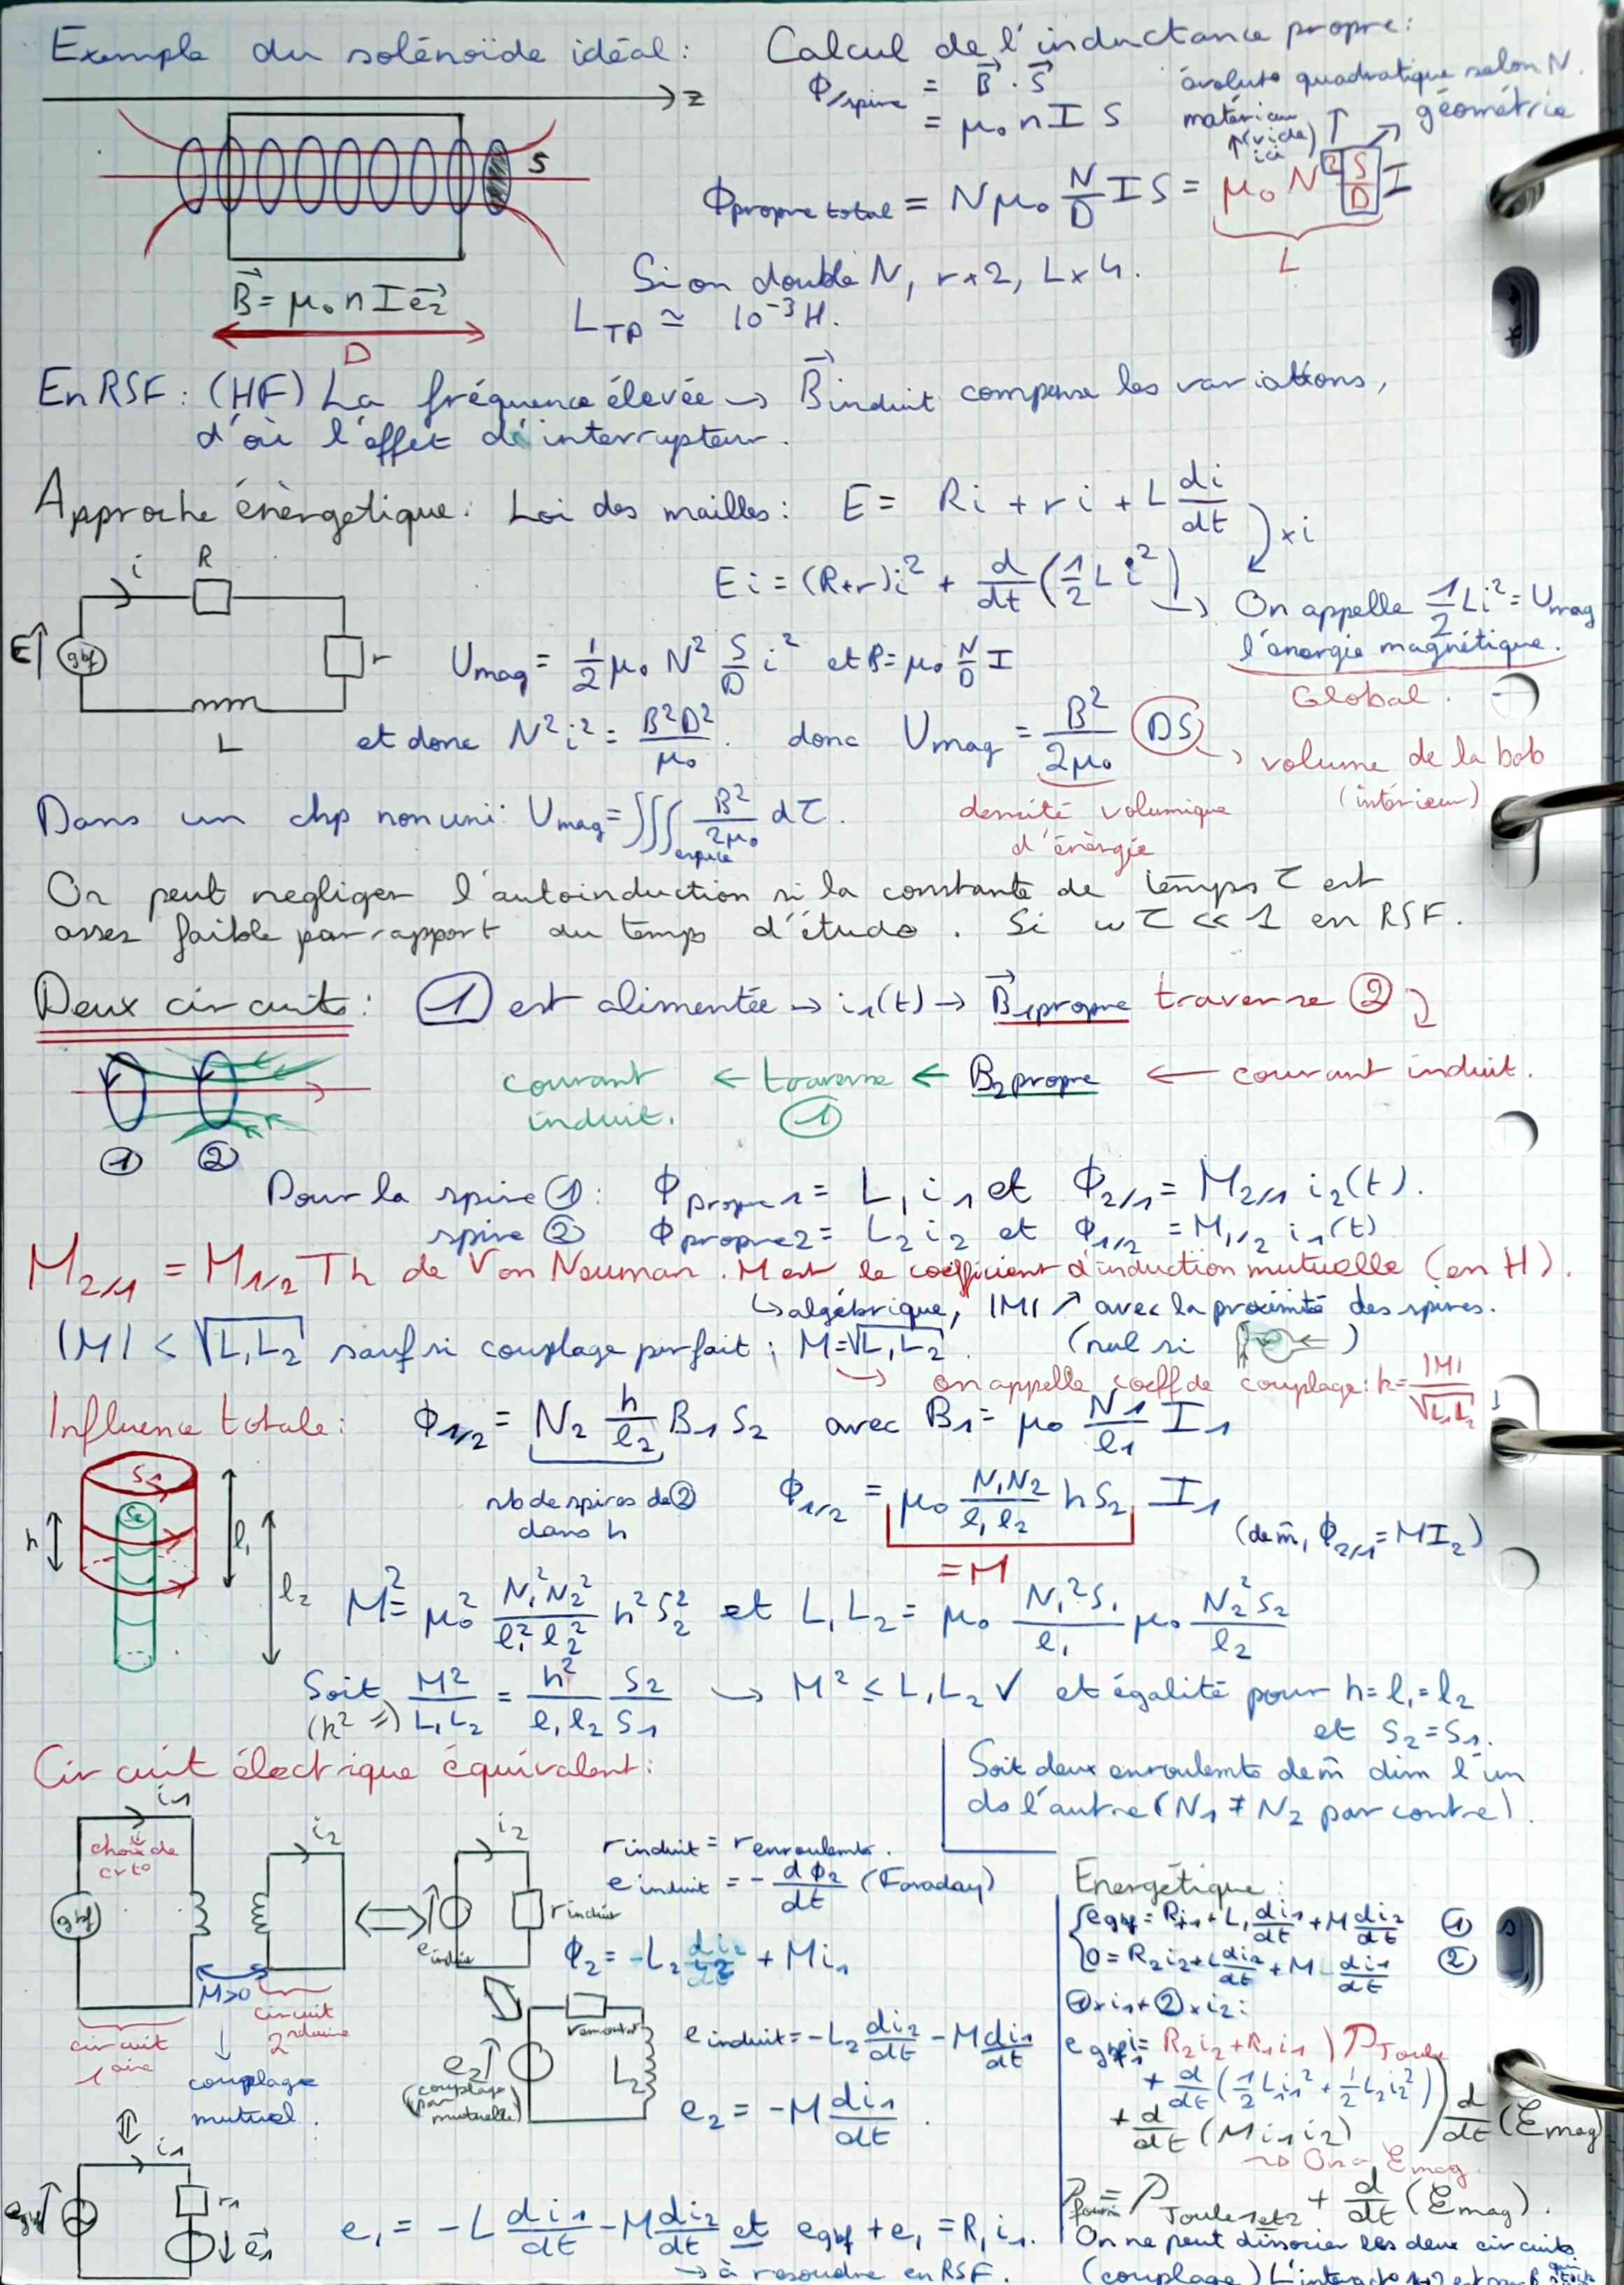 Exemple du solénoïde idéal :
Calcul de l'inductance propre :
Φ/spire = B⃗ . S⃗
= μ₀ n I S
évoluto quadratique selon N.
matériau (vide) ici
géométrie
z
S
Φpropre total = N μ₀ N/D I S = μ₀ N² S/D I
L
B⃗ = μ₀ n I e⃗z
D
Si on double N, r×2, L×4.
L_TP ≃ 10⁻³ H.
En RSF : (HF) La fréquence élevée → B⃗induit compense les variations,
d'où l'effet d'interrupteur.
Approche énergétique : Loi des mailles : E = Ri + ri + L di/dt
×i
Ei = (R+r)i² + d/dt (1/2 L i²)
→ On appelle 1/2 Li² = Umag
l'énergie magnétique.
Global.
i R
E gbf r
L
Umag = 1/2 μ₀ N² S/D i² et B = μ₀ N/D I
et donc N²i² = B²D²/μ₀. donc Umag = B²/2μ₀ DS
→ volume de la bob
(intérieur)
densité volumique
d'énergie
Dans un chp non uni : Umag = ∭espace B²/2μ₀ dτ.
On peut negliger l'autoinduction si la constante de temps τ est
assez faible par rapport au temps d'étude. Si ωτ << 1 en RSF.
Deux circuits : ① est alimentée → i₁(t) → B⃗1propre traverse ②
courant induit. ← traverse ① ← B2propre ← courant induit.
① ②
Pour la spire ① : Φpropre1 = L₁i₁ et Φ2/1 = M2/1 i₂(t).
spire ② Φpropre2 = L₂i₂ et Φ1/2 = M1/2 i₁(t)
M2/1 = M1/2 Th de Von Neuman. M est le coefficient d'induction mutuelle (en H).
↳ algébrique, |M| ↗ avec la proximité des spires.
|M| < √L₁L₂ sauf si couplage parfait ; M=√L₁L₂. (nul si )
→ on appelle coeff de couplage : k = |M|/√L₁L₂
Influence totale : Φ1/2 = N₂ h/l₂ B₁ S₂ avec B₁ = μ₀ N₁/l₁ I₁
nb de spires de ②
dans h
Φ1/2 = μ₀ N₁N₂/l₁l₂ h S₂ I₁
= M
(de m̂, Φ2/1 = MI₂)
S₁
S₂
h l₁ l₂
M² = μ₀² N₁²N₂²/l₁²l₂² h² S₂² et L₁L₂ = μ₀ N₁²S₁/l₁ μ₀ N₂²S₂/l₂
Soit M²/L₁L₂ = h²/l₁l₂ S₂/S₁ → M² ≤ L₁L₂ √ et égalité pour h = l₁ = l₂
(k² =)
et S₂ = S₁.
Circuit électrique équivalent :
Soit deux enroulemts de m̂ dim l'un
ds l'autre (N₁ ≠ N₂ par contre).
i₁
choix de
crto
gbf
M>0
circuit
1aire
couplage
mutuel.
i₂
circuit
2ndaire
i₂
einduit
rinduit
rinduit = renroulemts.
einduit = - dΦ₂/dt (Faraday)
Φ₂ = -L₂ di₂/dt + Mi₁
einduit = -L₂ di₂/dt - M di₁/dt
e₂
(couplage
par
mutuelle)
L₂
e₂ = -M di₁/dt.
Energétique :
egbf = R₁i₁ + L₁ di₁/dt + M di₂/dt ①
0 = R₂i₂ + L di₂/dt + M di₁/dt ②
①×i₁ + ②×i₂ :
egbf i₁ = R₂i₂ + R₁i₁ ) PJoule
+ d/dt (1/2 L₁i₁² + 1/2 L₂i₂²)
+ d/dt (M i₁i₂)
d/dt (Emag)
→ On a Emag
Pfourni = PJoule1et2 + d/dt (Emag).
On ne peut dissocier les deux circuits
i₁
egbf
r₁
e⃗₁
e₁ = -L di₁/dt - M di₂/dt et egbf + e₁ = R₁i₁.
→ à resoudre en RSF.
(couplage)